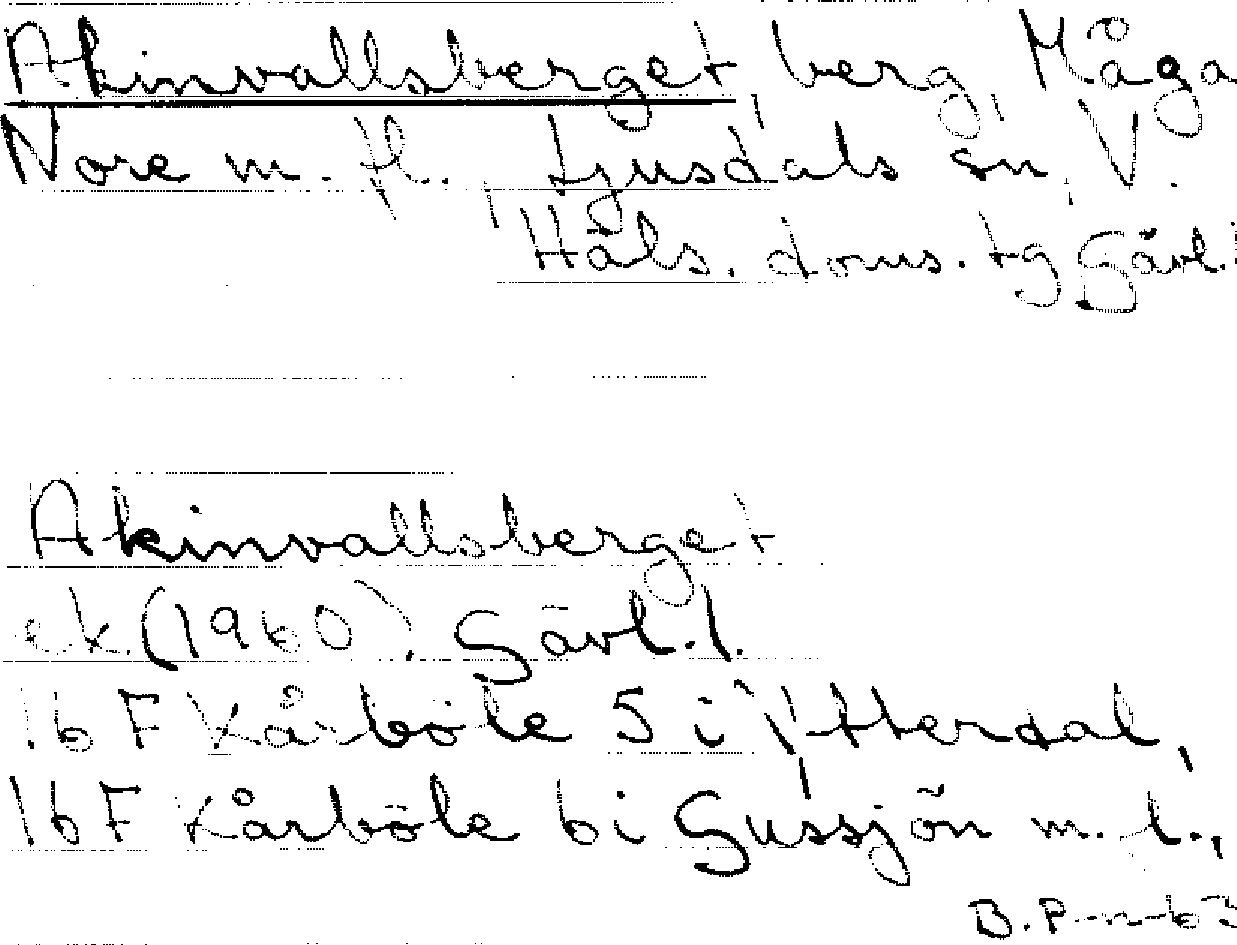 Akinvallsberget, berg, Måga
Nore m. fl., Ljusdals sn, V.
Häls. doms. tg Gävl. l
Akinvallsberget
ek. (1960), Gävl. l.
16 F Kårböle 5 i Ytterdal,
16 F Kårböle 6 i Gussjön m. t.,
B. P-n-63